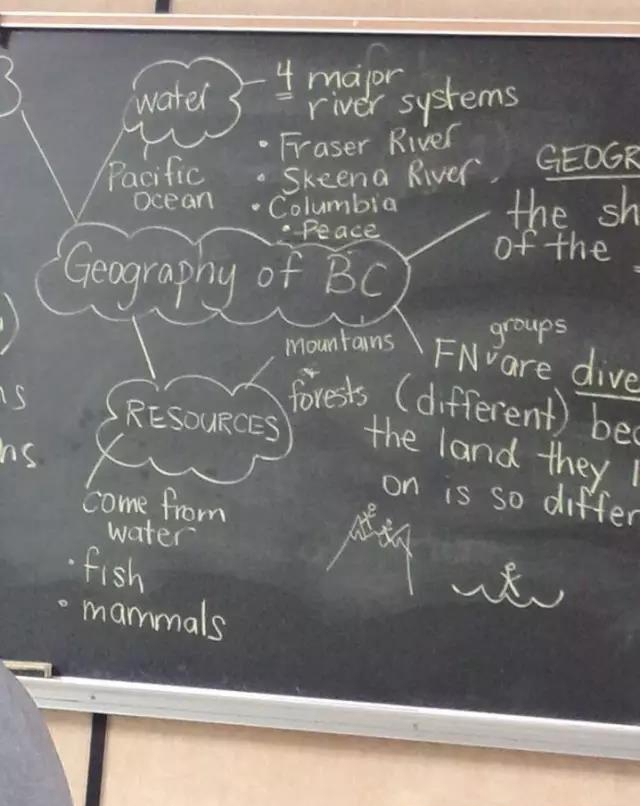 water
4 major
river systems
• Fraser River
• Skeena River
• Columbia
• Peace
Pacific
Ocean
GEOGR
the sh
of the
Geography of BC
groups
FN are dive
(different) bec
the land they l
on is so differ
mountains
forests
RESOURCES
come from
water
• fish
• mammals
ns
ns